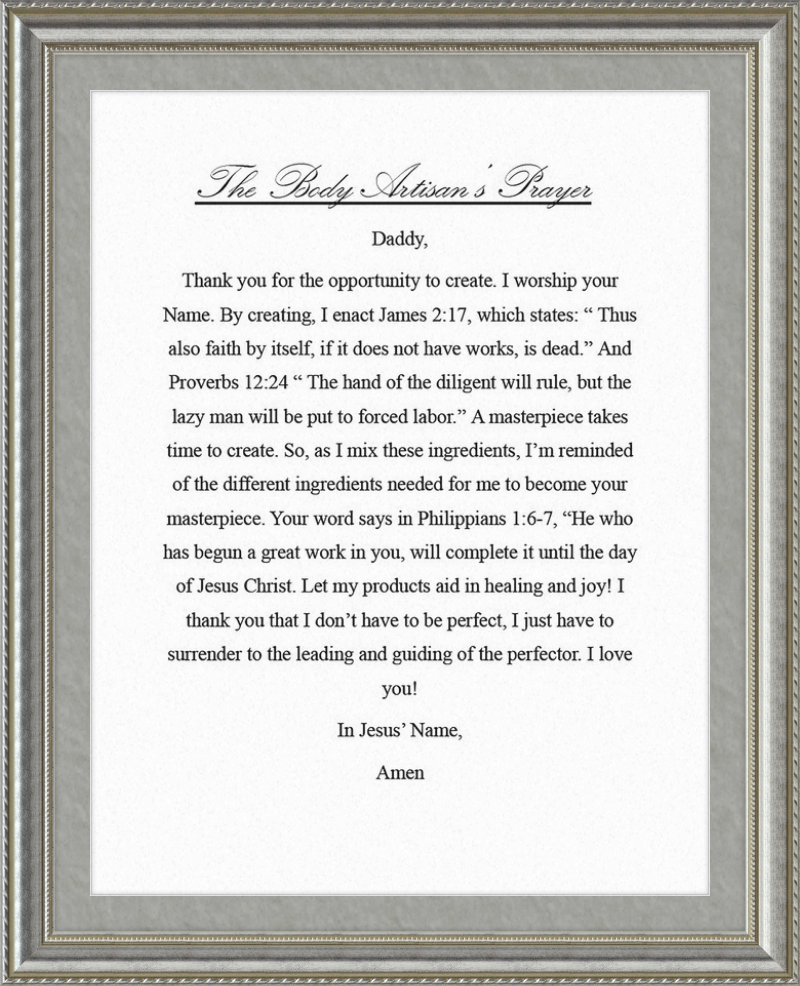 The Body Artisan's Prayer
Daddy,
Thank you for the opportunity to create. I worship your
Name. By creating, I enact James 2:17, which states: “ Thus
also faith by itself, if it does not have works, is dead.” And
Proverbs 12:24 “ The hand of the diligent will rule, but the
lazy man will be put to forced labor.” A masterpiece takes
time to create. So, as I mix these ingredients, I’m reminded
of the different ingredients needed for me to become your
masterpiece. Your word says in Philippians 1:6-7, “He who
has begun a great work in you, will complete it until the day
of Jesus Christ. Let my products aid in healing and joy! I
thank you that I don’t have to be perfect, I just have to
surrender to the leading and guiding of the perfector. I love
you!
In Jesus’ Name,
Amen